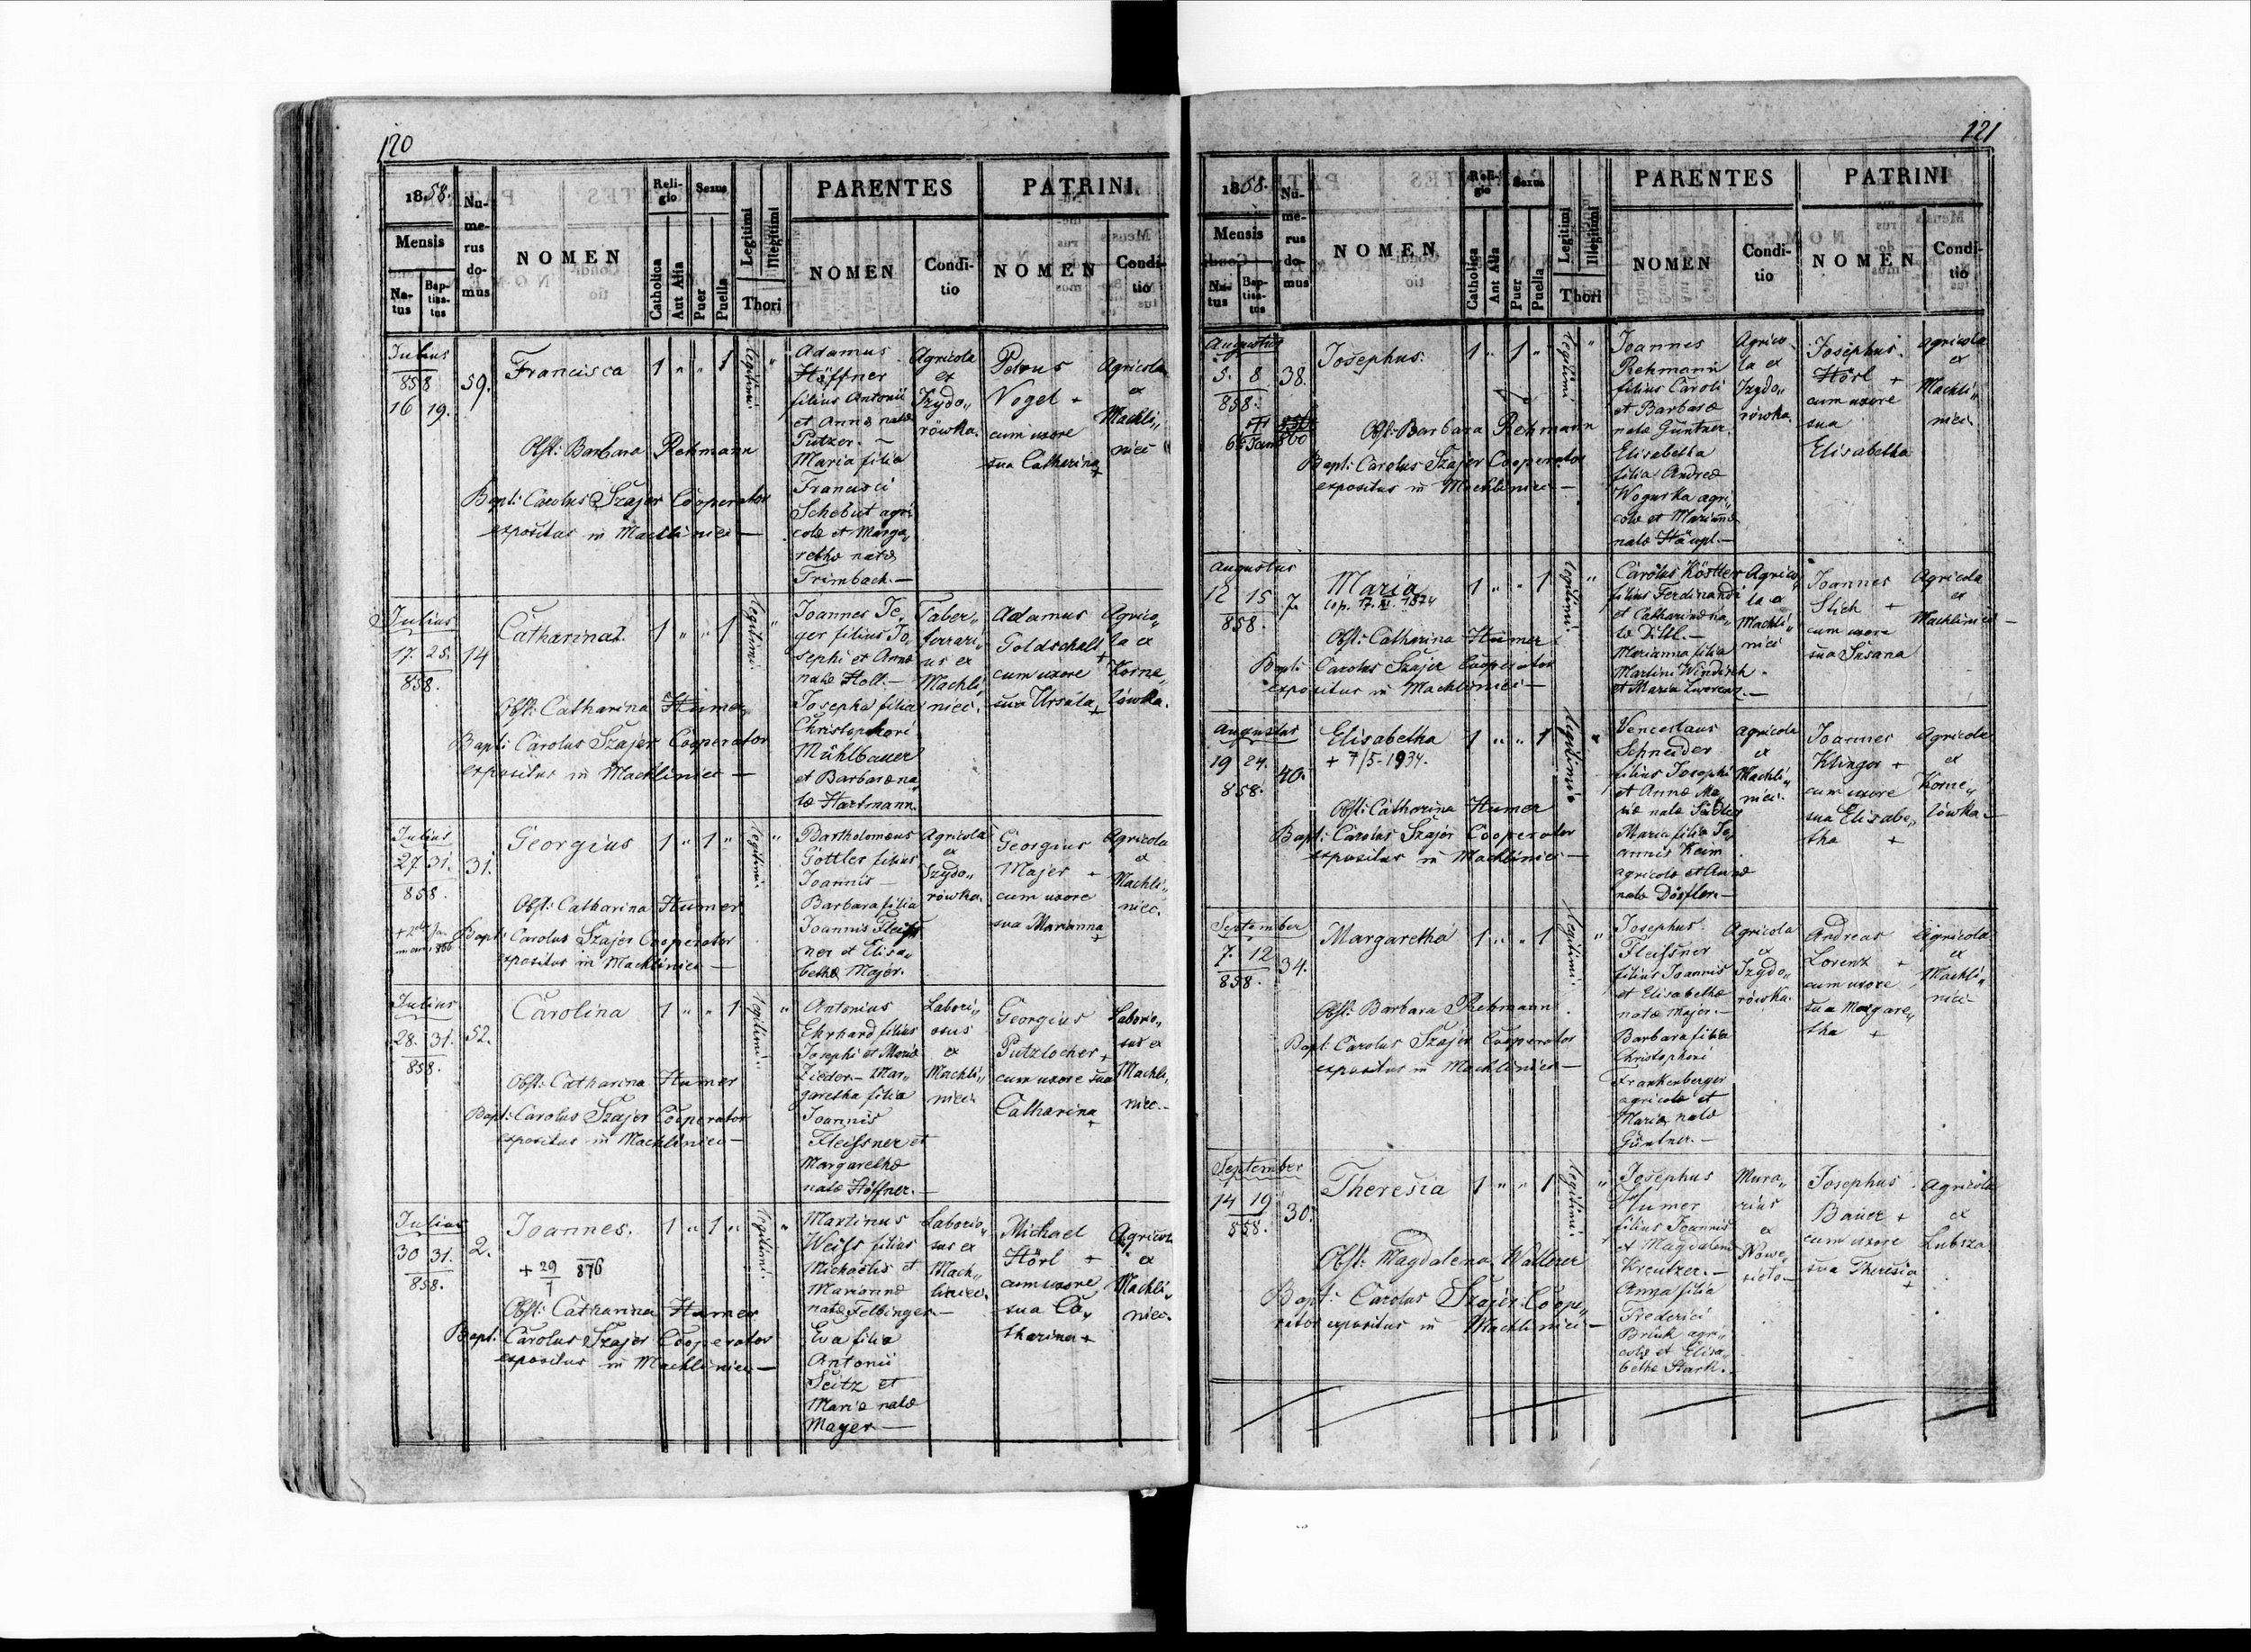 120
1858.
Mensis
Na-
tus
Bap-
tisa-
tus
Nu-
me-
rus
do-
mus
NOMEN
Reli-
gio
Catholica
Aut Alia
Sexus
Puer
Puella
Legitimi
Illegitimi
Thori
PARENTES
NOMEN
Condi-
tio
PATRINI
NOMEN
Condi-
tio
Julius
858
16 19.
59.
Francisca
1 " " 1
legitimi.
"
Obst: Barbara Rehmann
Bapt: Carolus Szajer Cooperator
expositus in Machliniec —
Adamus
Höffner
filius Antonii
et Annæ natæ
Putzer. —
Maria filia
Francisci
Schebut agri
colæ et Marga„
rethæ natæ
Trimbach. —
Agricola
ex
Izydo„
rówka.
Petrus
Vogel +
cum uxore
sua Catharina
+
Agricola
ex
Machli„
niec
Julius
17. 25.
858.
14
Catharina.
1 " " 1
legitimi.
"
Obst: Catharina Humer
Bapt: Carolus Szajer Cooperator
expositus in Machliniec —
Joannes Je„
ger filius Jo„
sephi et Annæ
natæ Holl. —
Josepha filia
Christophori
Mühlbauer
et Barbaræ na„
tæ Hartmann.
Faber„
ferrari„
us ex
Machli„
niec.
Adamus
Goldschalt
+
cum uxore
sua Ursula +
Agrico„
la ex
Korne„
lówka.
Julius
27. 31.
858.
31.
Georgius
1 " 1 "
legitimi.
"
Obst: Catharina Humer
Bapt: Carolus Szajer Cooperator
expositus in Machliniec —
Bartholomæus
Göttler filius
Joannis —
Barbara filia
Joannis Fleiß
ner et Elisa„
bethæ Majer.
Agricola
ex
Izydo„
rówka.
Georgius
Majer +
cum uxore
sua Marianna
+
Agricola
ex
Machli„
niec.
Julius
28. 31.
858.
52.
Carolina
1 " " 1
legitimi.
"
Obst: Catharina Humer
Bapt: Carolus Szajer Cooperator
expositus in Machliniec —
Antonius
Ehrhard filius
Josephi et Mariæ
Zieder. — Mar„
garetha filia
Joannis
Fleißner et
Margarethæ
natæ Höffner. —
Labori„
osus
ex
Machli„
niec.
Georgius
Putzlocher +
cum uxore sua
Catharina
+
Laborio„
sus ex
Machli„
niec. —
Julius
30 31.
858.
2.
Joannes.
1 " 1 "
legitimi.
"
+ 29/7 876
Obst: Catharina Humer
Bapt: Carolus Szajer Cooperator
expositus in Machliniec —
Martinus
Weiss filius
Michaelis et
Mariannæ
natæ Felbinger —
Eva filia
Antonii
Seitz et
Mariæ natæ
Mayer —
Laborio„
sus ex
Mach„
liniec.
Michael
Hörl +
cum uxore
sua Ca„
tharina +
Agricola
ex
Machli„
niec.
121
1858.
Mensis
Na-
tus
Bap-
tisa-
tus
Nu-
me-
rus
do-
mus
NOMEN
Reli-
gio
Catholica
Aut Alia
Sexus
Puer
Puella
Legitimi
Illegitimi
Thori
PARENTES
NOMEN
Condi-
tio
PATRINI
NOMEN
Condi-
tio
Augustus
5. 8
858.
38.
Josephus.
1 " 1 "
legitimi
"
Obst: Barbara Rehmann
Bapt: Carolus Szajer Cooperator
expositus in Machliniec —
Joannes
Rehmann
filius Caroli
et Barbaræ
natæ Güntner.
Elisabetha
filia Andreæ
Wogurka agri„
colæ et Mariannæ
natæ Häupl. —
Agrico„
la ex
Izydo„
rówka.
Josephus
Hörl +
cum uxore
sua
Elisabetha
agricola
ex
Machli„
niec.
Augustus
12 15
858.
7.
Maria
cop. 17. XI. 1874
1 " " 1
legitimi.
"
Obst: Catharina Humer
Bapt: Carolus Szajer Cooperator
expositus in Machliniec —
Carolus Köstler
filius Ferdinandi
et Catharinæ na„
tæ Dittl. —
Marianna filia
Martini Windisch
Agrico„
la ex
Machli„
niec
Joannes
Stich +
cum uxore
sua Susana
Agricola
ex
Machliniec —
Augustus
19 24.
858.
40.
Elisabetha
+ 7/5-1934.
1 " " 1
legitimi
"
Obst: Catharina Humer
Bapt: Carolus Szajer Cooperator
expositus in Machliniec —
Venceslaus
Schneider
filius Josephi
et Annæ Ma„
riæ natæ Siedler
Maria filia Jo„
annis Keim
agricolæ et Annæ
natæ Dörfler. —
Agricola
ex
Machli„
niec.
Joannes
Klinger +
cum uxore
sua Elisabe„
tha +
Agricola
ex
Korne„
lówka —
September
7. 12
858.
34.
Margaretha
1 " " 1
legitimi.
"
Obst: Barbara Rehmann
Bapt: Carolus Szajer Cooperator
expositus in Machliniec —
Josephus
Fleißner
filius Joannis
et Elisabethæ
natæ Majer. —
Barbara filia
Christophori
Frankenberger
agricolæ et
Mariæ natæ
Güntner. —
Agricola
ex
Izydo„
rówka.
Andreas
Lorenz +
cum uxore
sua Margare„
tha +
Agricola
ex
Machli„
niec —
September
14 19
858.
30.
Theresia
1 " " 1
legitimi.
"
Obst: Magdalena Wallerer
Bapt: Carolus Szajer Coope„
rator expositus in Machliniec —
Josephus
Humer
filius Joannis
et Magdalenæ
Kreutzer. —
Anna filia
Frederici
Brück agri„
colæ et Elisa„
bethæ Stark.
Mura„
rius
ex
Nowe„
sioło —
Josephus
Bauer +
cum uxore
sua Theresia
+
Agricola
ex
Lubsza